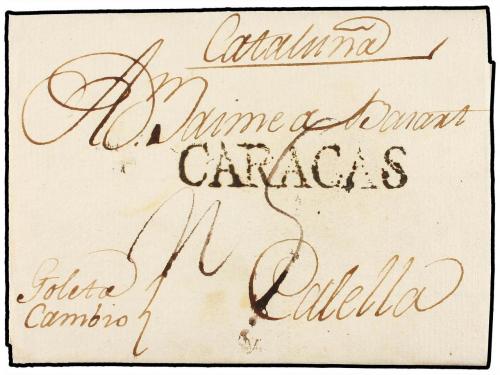 Cataluña
A Dn. Jaime a Barart
CARACAS
5
Goleta
Cambio
Calella